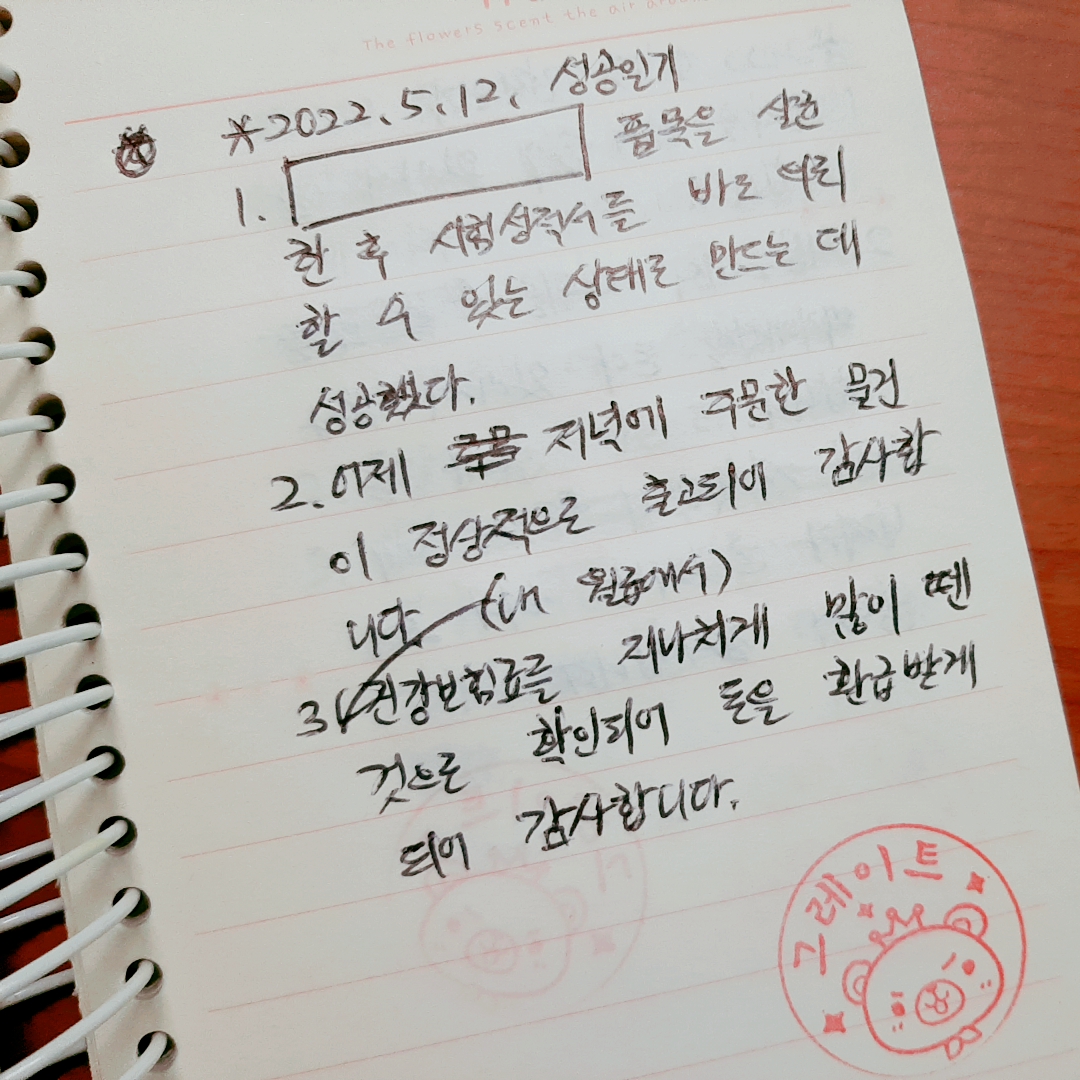 The flowers scent the air around
*2022.5.12. 성공일기
1. 품목을 실험
한 후 시험성적서를 바로 처리
할 수 있는 상태로 만드는 데
성공했다.
2. 어제 저녁에 주문한 물건
이 정상적으로 출고되어 감사합
니다 (in 월급에서)
3. 건강보험료를 지나치게 많이 뗀
것으로 확인되어 돈을 환급받게
되어 감사합니다.
그레이트